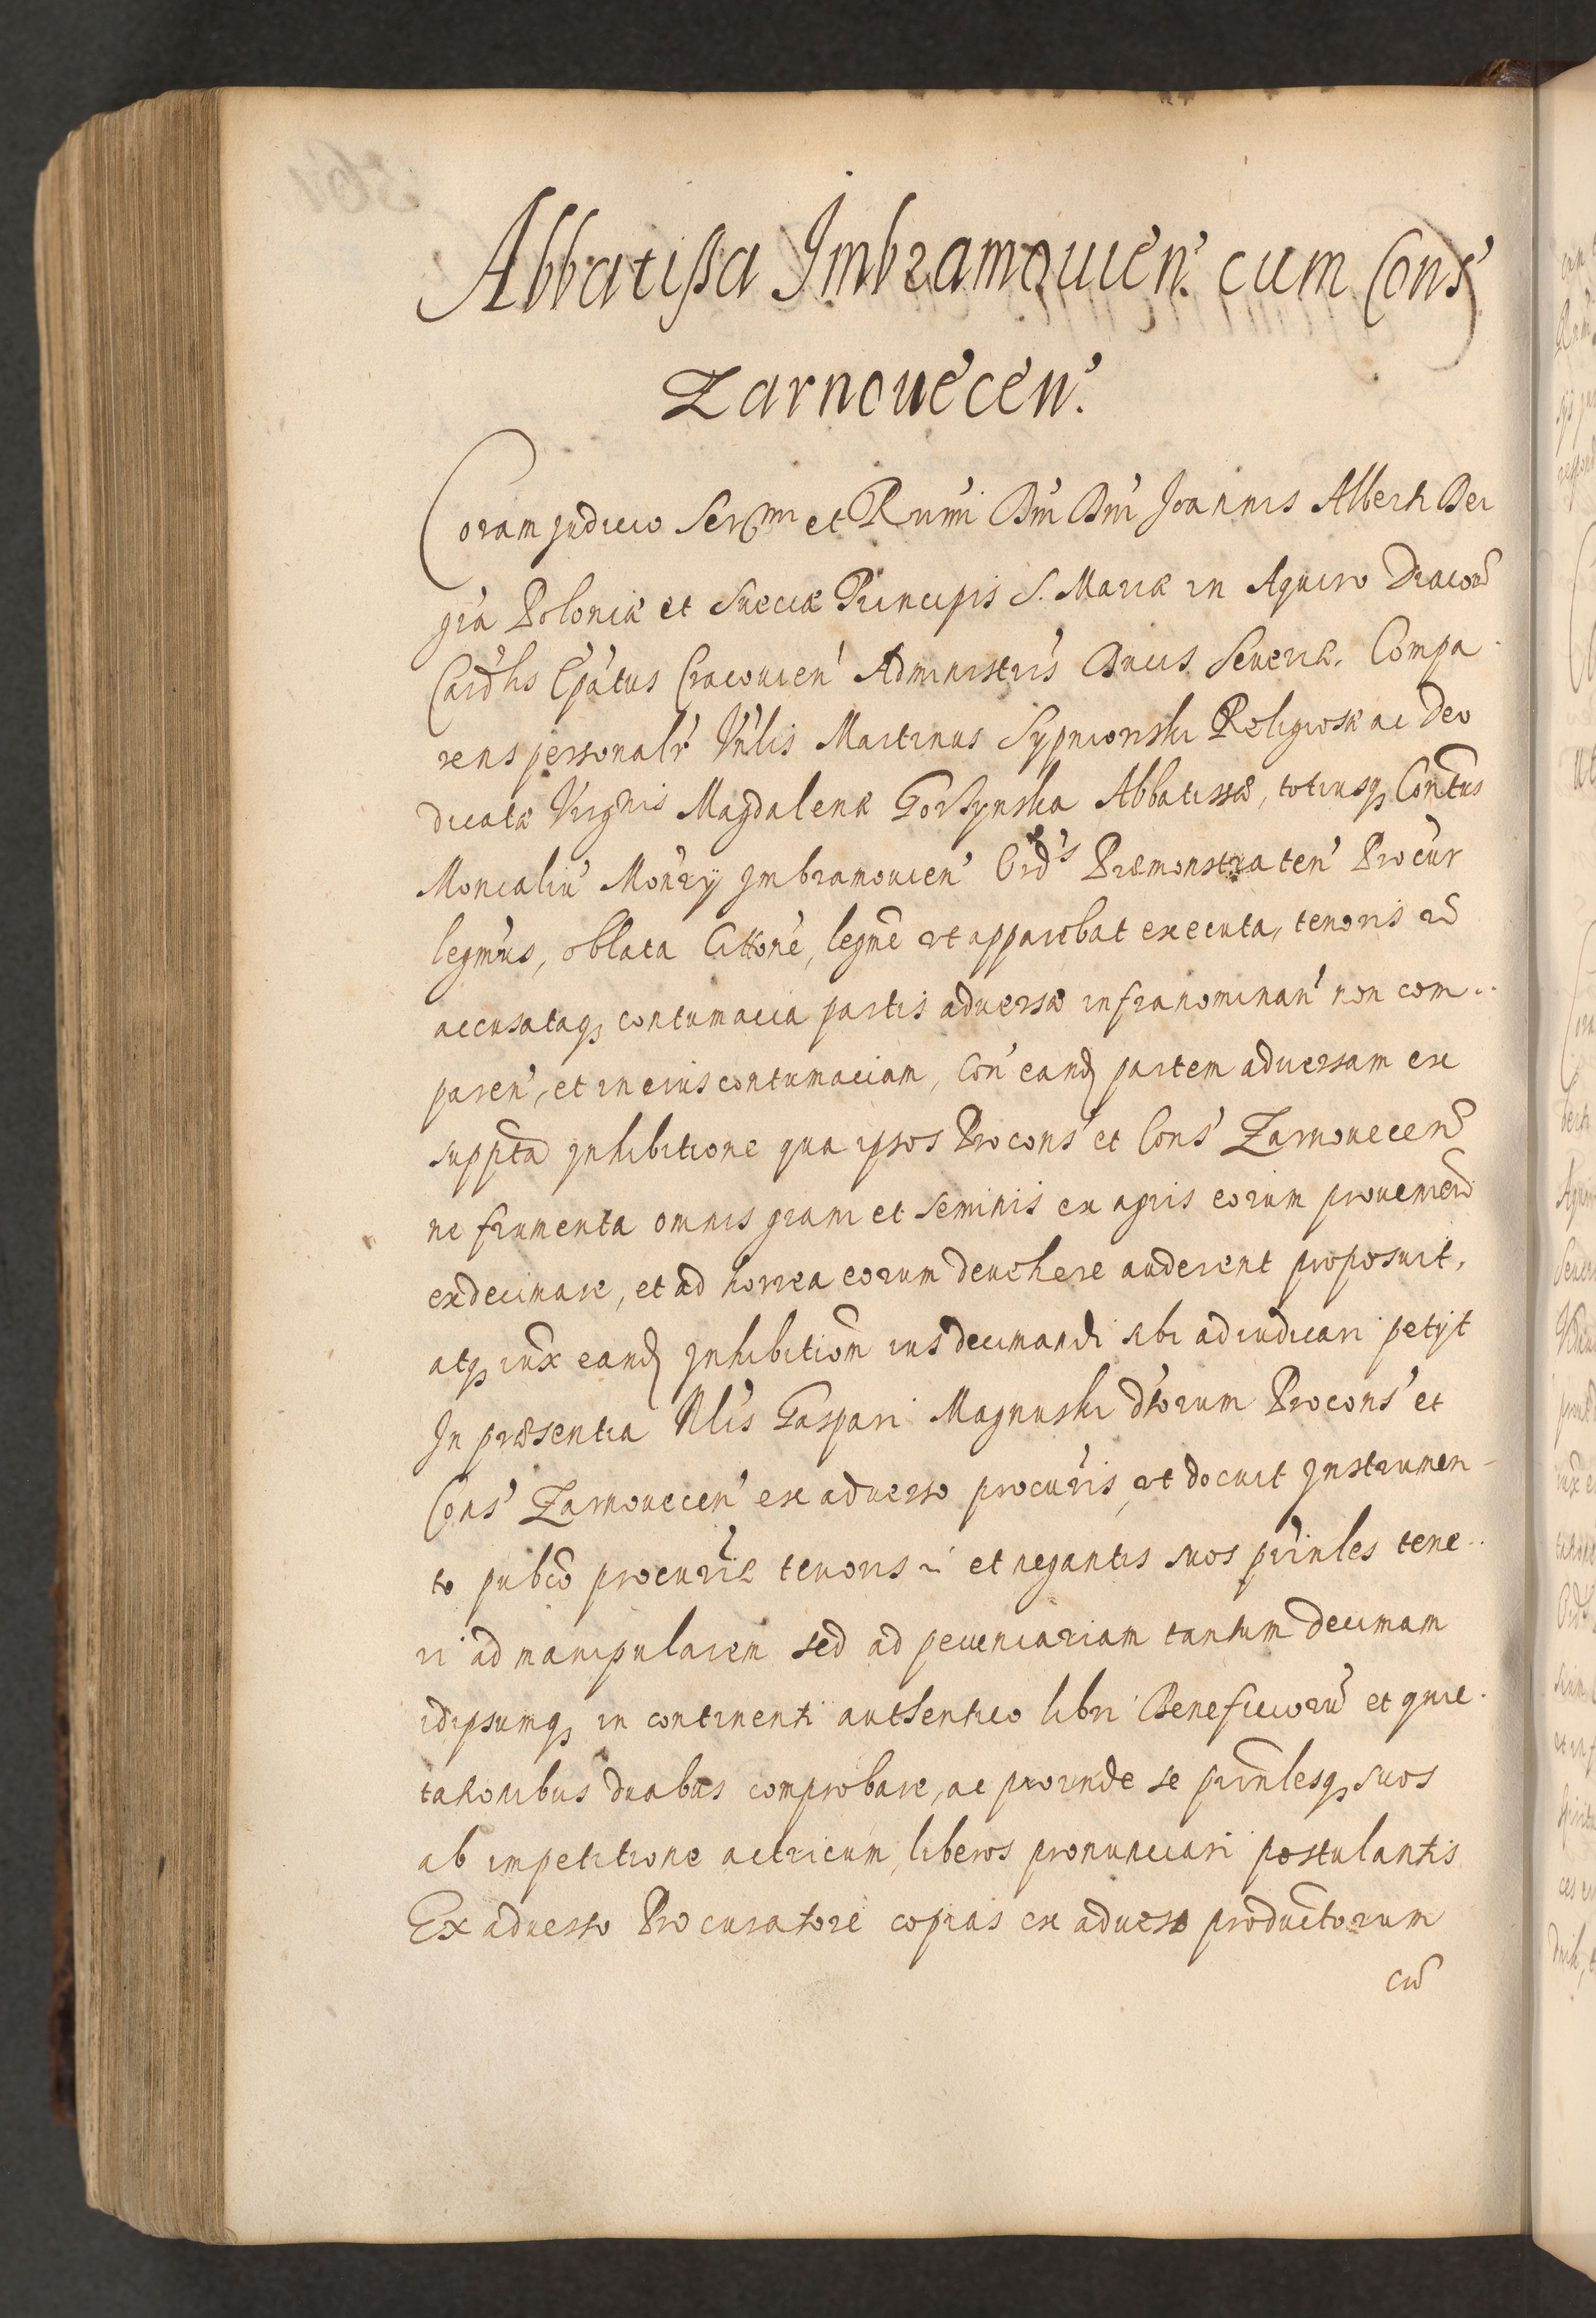 Abbatißa Jmbramouien: cum Cons
Zarnouecen:
Coram judicio Sermi et Rmi Dni Dni Joannis Alberti Dei
gra Poloniæ et Sueciæ Principis S. Mariæ in Aquiro Diacon
Cardlis Epatus Cracouien Administris Ducis Seueriæ. Compa
rens personalr Vnlis Martinus Sypniorski Religiosæ ac Deo
dicatæ Virgnis Magdalenæ Abbatissæ, totiusq Contus
Monialiu Monry Jmbramouien Ordis Præmonstraten Procur
legmus, oblata Cittone, legme vt apparebat executa, tenoris
accusataq contumacia partis aduersæ infranominan non com
paren, et in eius contumaciam, Con eand partem aduersam ex
suppta Jnhibitione qua ipsos Procons et Cons Zarnouecen
ne frumenta omnis grani et seminis ex agris eorum prouenien
exdecimare, et ad horrea eorum deuehere auderent proposuit,
atq iux eand Jnhibition ius decimandi sibi adiudicari petijt
Jn præsentia Nlis Gaspari Magnuski dtorum Procons et
Cons Zarnouecen ex aduerso procuris, vt docuit Jnstrumen
to pubco procuriæ tenoris et negantis suos prinles tene
ri ad manipularem sed ad pecuniariam tantum decimam
idipsumq in continenti authentico libri Beneficioru et quie
tationibus duabus comprobare, ac proinde se prinlesq suos
ab impetitione actricum, liberos pronunciari postulantis
Ex aduerso Procuratore copias ex aduerso productorum
cu